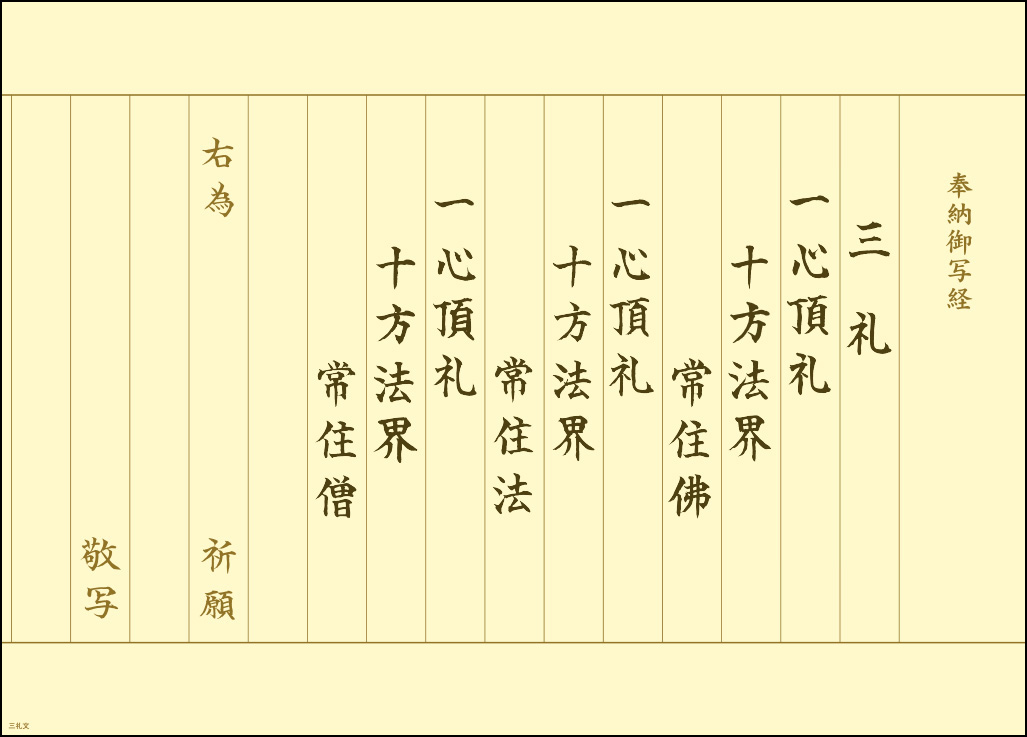 奉納御写経
三礼
一心頂礼
十方法界
常住佛
一心頂礼
十方法界
常住法
一心頂礼
十方法界
常住僧
右為 祈願
敬写
三礼文